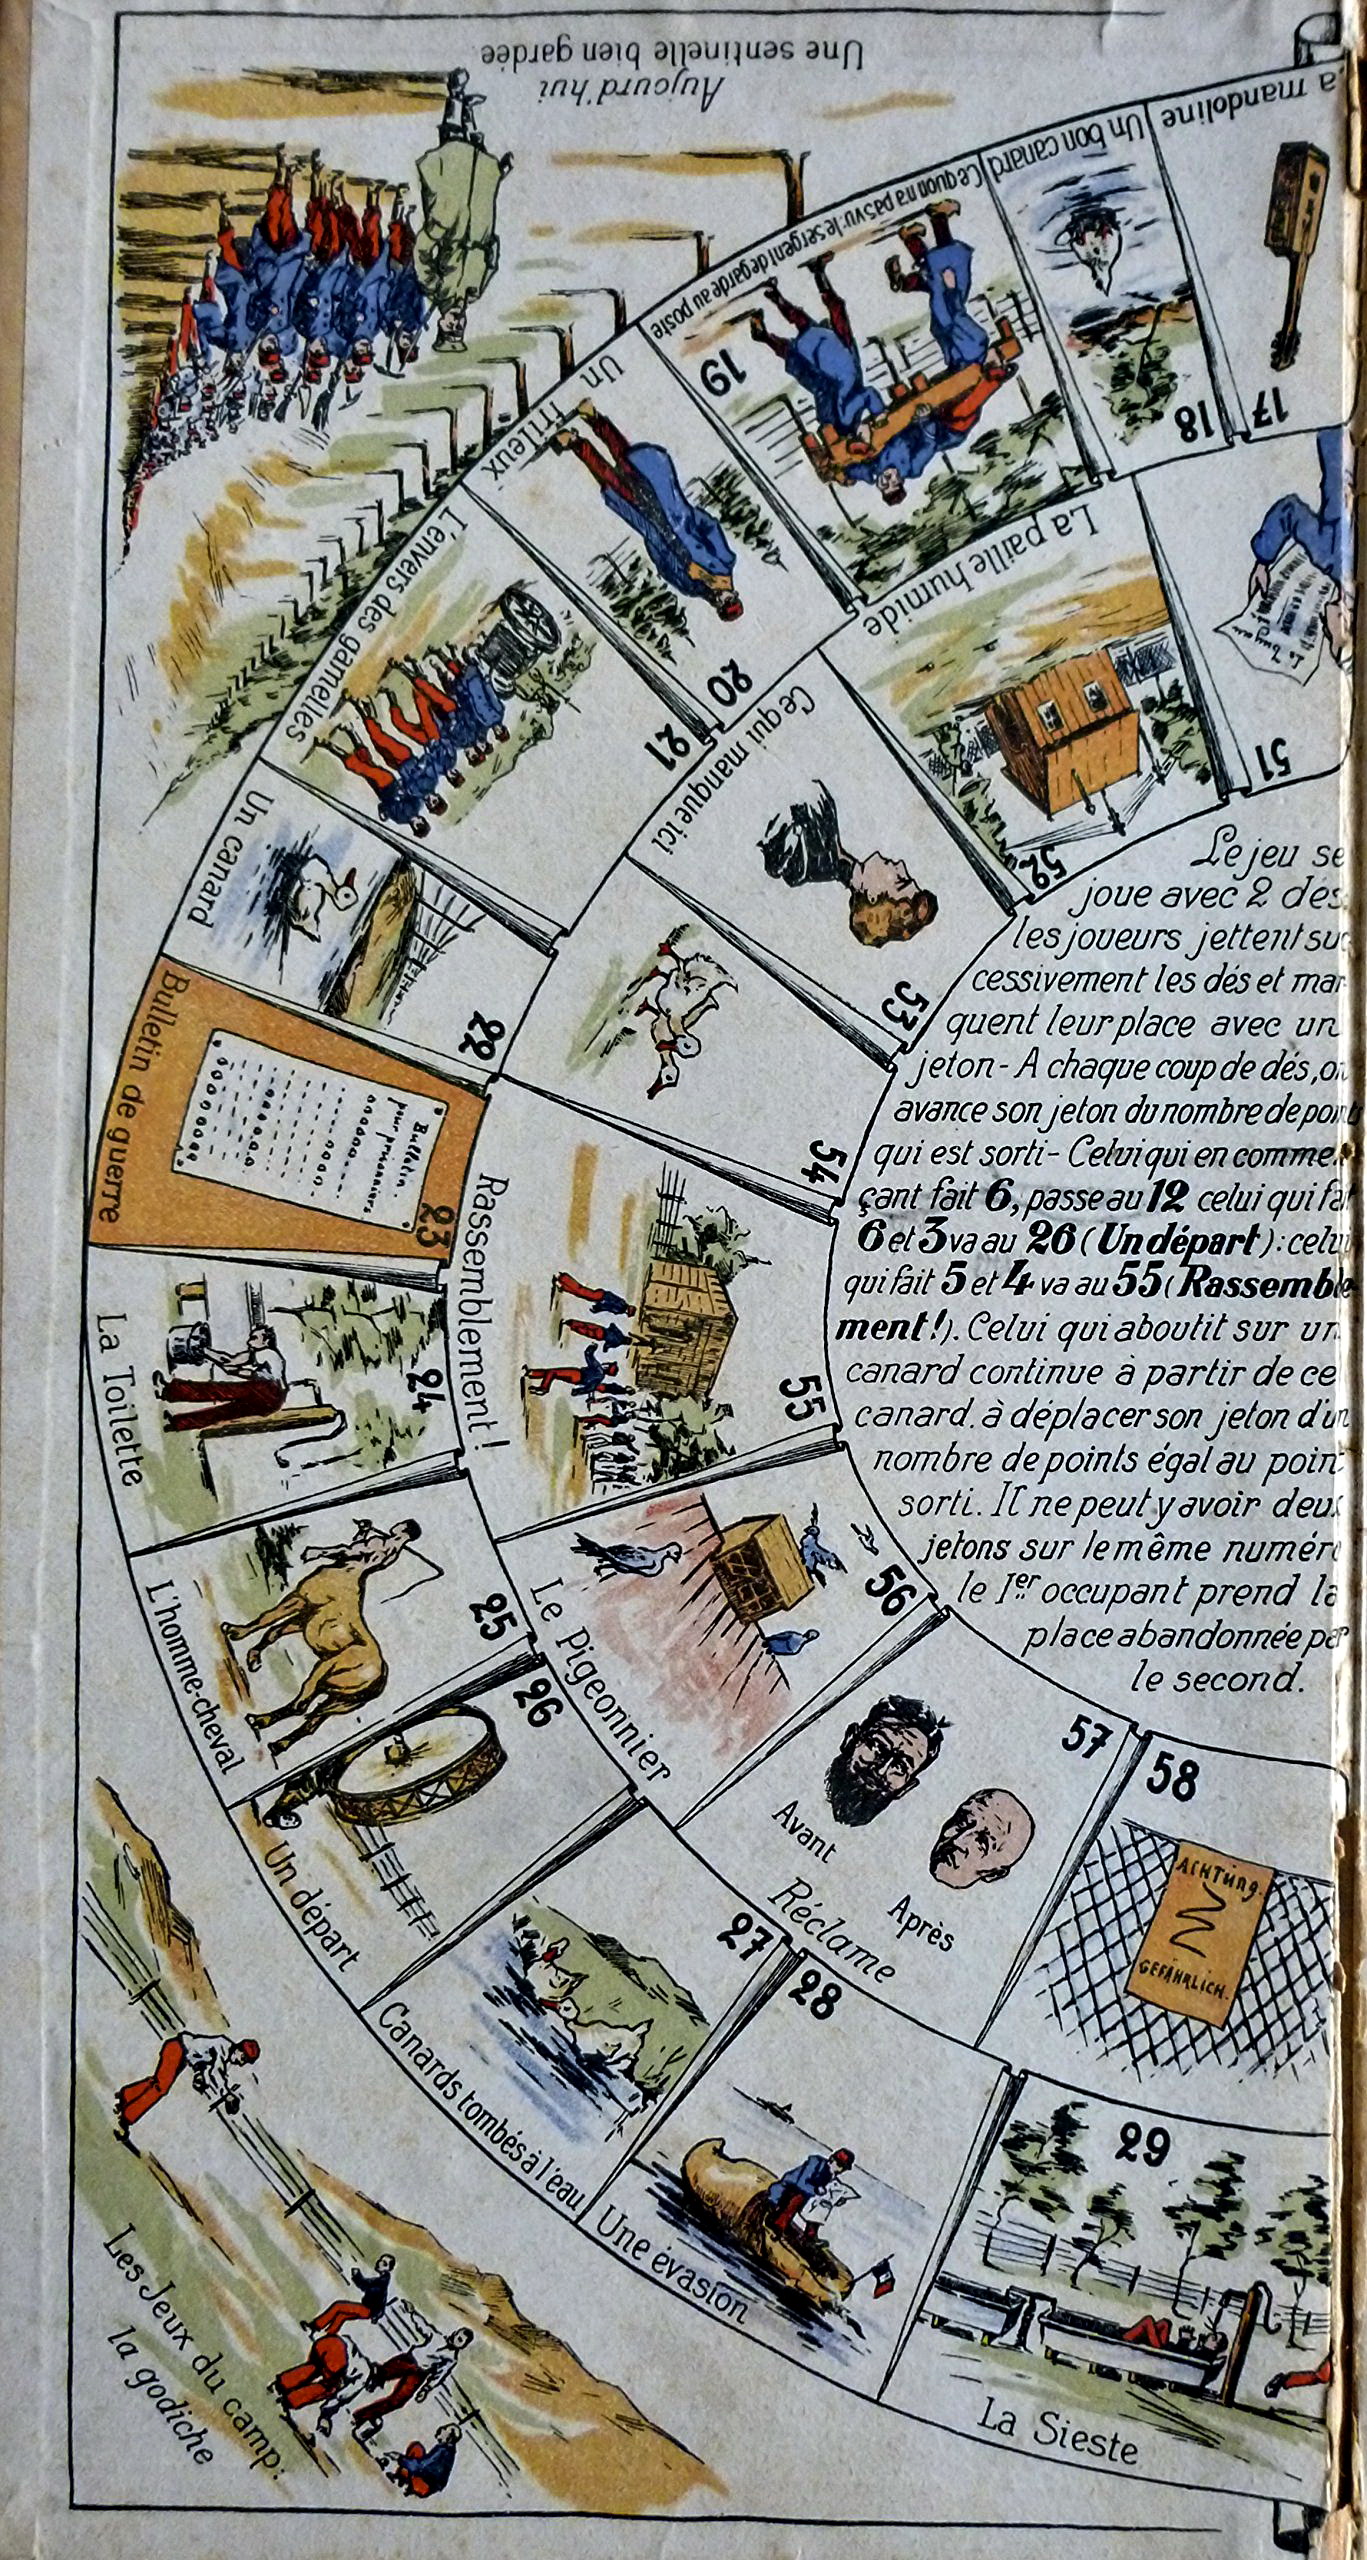 Aujourd'hui
Une sentinelle bien gardée
a mandoline
17
Un bon canard
18
Ce quon n'a pas vu: le sergent de garde au poste
19
Un frileux
20
L'envers des gamelles
21
Un canard
22
Bulletin de guerre
Bulletin
pour prisonniers
23
La Toilette
24
L'homme-cheval
25
Un départ
26
Canards tombés à l'eau
27
Une évasion
28
La Sieste
29
51
La paille humide
52
Ce qui manque ici
53
54
Rassemblement!
55
Le Pigeonnier
56
57
Avant
Après
Réclame
58
ACHTUNG.
GEFÄHRLICH.
Le jeu se
joue avec 2 dés.
les joueurs jettent suc
cessivement les dés et mar
quent leur place avec un
jeton - A chaque coup de dés, on
avance son jeton du nombre de poin
qui est sorti - Celui qui en commen
çant fait 6, passe au 12 celui qui fa
6 et 3 va au 26 (Un départ): celui
qui fait 5 et 4 va au 55 (Rassemble
ment!). Celui qui aboutit sur un
canard continue à partir de ce
canard. à déplacer son jeton d'un
nombre de points égal au point
sorti. Il ne peut y avoir deux
jetons sur le même numéro
le 1er occupant prend la
place abandonnée par
le second.
Les Jeux du camp:
la godiche